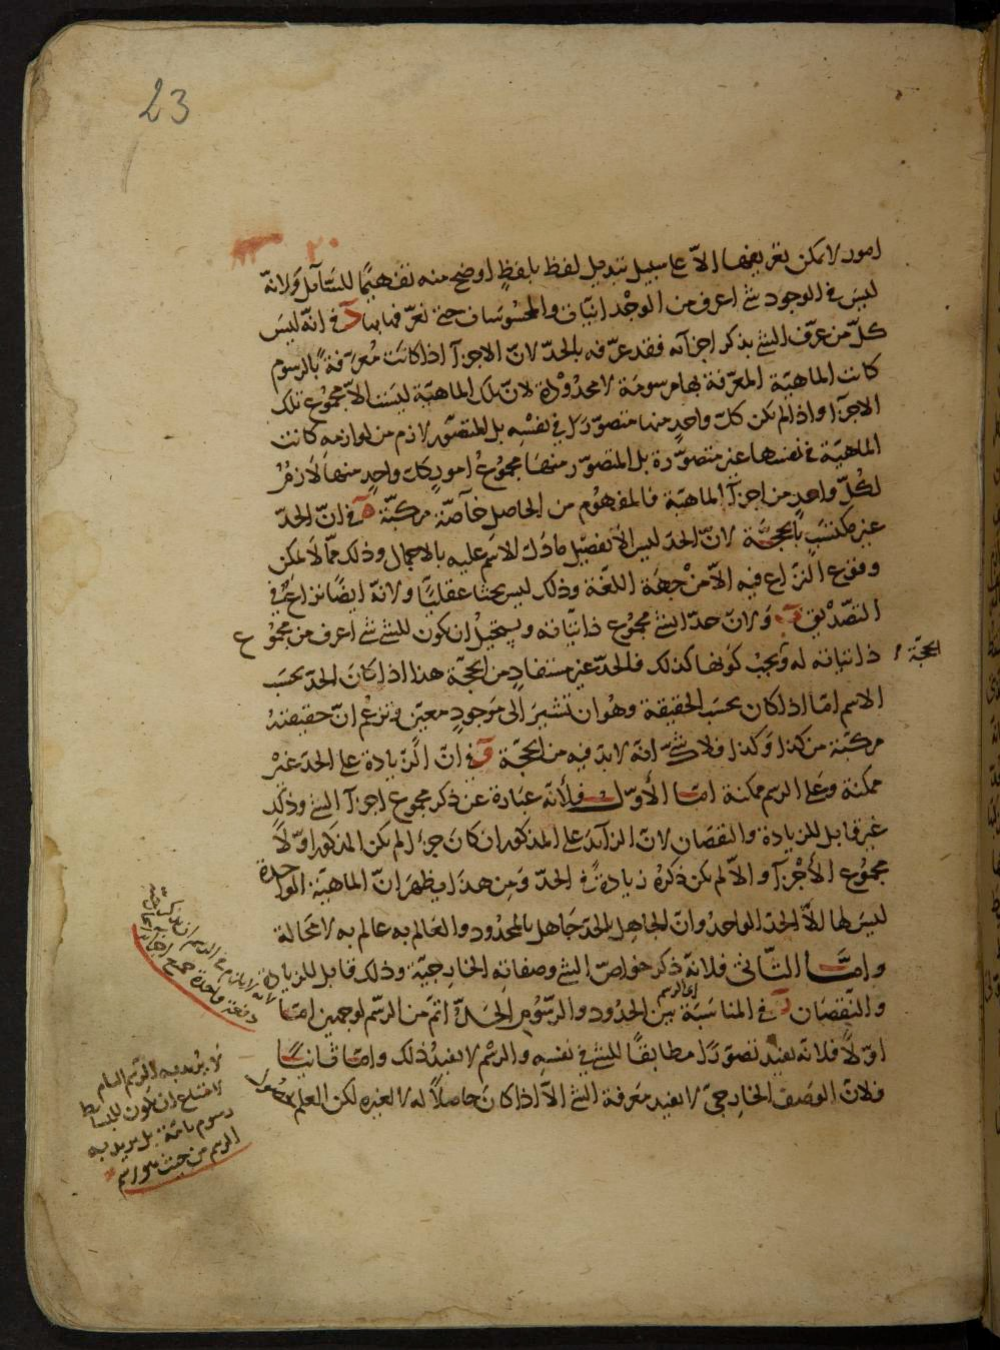 23
٢٠
امور لا يمكن تعريفها الا على سبيل تبديل لفظ بلفظ اوضح منه تفهيمًا للسائل ولانه
ليس فى الوجود شئ اعرف من الوجدانيات والمحسوسات حتى نعرفها بها د فى انه ليس
كل من عرف الشئ بذكر اجزائه فقد عرفه بالحدّ لانّ الاجزآ اذا كانت مُعرّفة بالرسوم
كانت الماهيّة المعرّفة بها مرسومة لا محدُودة لان تلك الماهيّة ليست الا مجموع تلك
الاجزآ واذا لم يكن كل واحدٍ منها متصوّرًا فى نفسه بل المتصوّر لازم من لوازمه كانت
الماهيّة فى نفسها غير متصوّرة بل المتصوّر منها مجموعُ امورٍ كل واحدٍ منها لازمٌ
لكلّ واحدٍ من اجزآ الماهيّة فالمفهوم من الحاصل خاصّة مركّبة هـ فى انّ الحدّ
غير مكتسَبٍ بالحجّة لانّ الحد ليس الا تفصيل ما دل الاسم عليه بالاجمال وذلك ممّا لا يمكن
وقوع النزاع فيه الا من جهة اللغة وذلك ليس بحثا عقليًّا ولانه ايضًا نزاعٌ فى
التصديق ولانّ حدّ الشئ مجموع ذاتياته ويستحيل ان يكون للشئ شئ اعرف من مجموع
ذاتياته له ويجب كونها كذلك فالحدّ غير مستفادٍ من الحجّة هذا اذا كان الحد بحسَب
الحجّة
الاسم امّا اذا كان بحسَب الحقيقة وهو ان تشير الى موجودٍ معيّن وتزعم انّ حقيقته
مركّبة من كذا وكذا فلا شكّ انه لا بد فيه من الحجّة و فى انّ الزيادة على الحد غير
ممكنة وعلى الرسم ممكنة امّا الأوّل فلأنّه عبارة عن ذكر مجموع اجزآ الشئ وذلك
غير قابل للزيادة والنقصان لانّ الزآئد على المذكور ان كان جزءًا لم يكن المذكور اوّلًا
مجموع الأجزآ والا لم يكن ذكره زيادةً فى الحدّ ومن هذا يظهر انّ الماهيّة الواحدة
ليس لها الّا الحدّ الواحد وانّ الجاهل بالحدّ جاهل بالمحدود والعالم به عالم به لا محالة
وامّا الثّانى فلانّه ذكر خواصّ الشئ وصفاته الخارجيّة وذلك قابل للزيادة
والنّقصان ز فى المناسَبَة بين الحدُود والرسُوم الحدّ اتمّ من الرسم لوجهين امّا
اى الرسم
اوّلًا فلانّه يفيد تصوّرًا مطابقًا للشئ فى نفسه والرسم لا يفيد ذلك وامّا ثانيًا
فلانّ الوصف الخارجىّ لا يفيد معرفة الشئ الّا اذا كان حاصلًا له لا لغيره لكن العلم
لانه لا يلزم فى الرسم ان
دفعة واحدة جميع
لا يريد به الرسم التام
لامتناع ان يكون للبسايط
رسوم تامّة بل يريد به
الرسم من حيث هو رسم